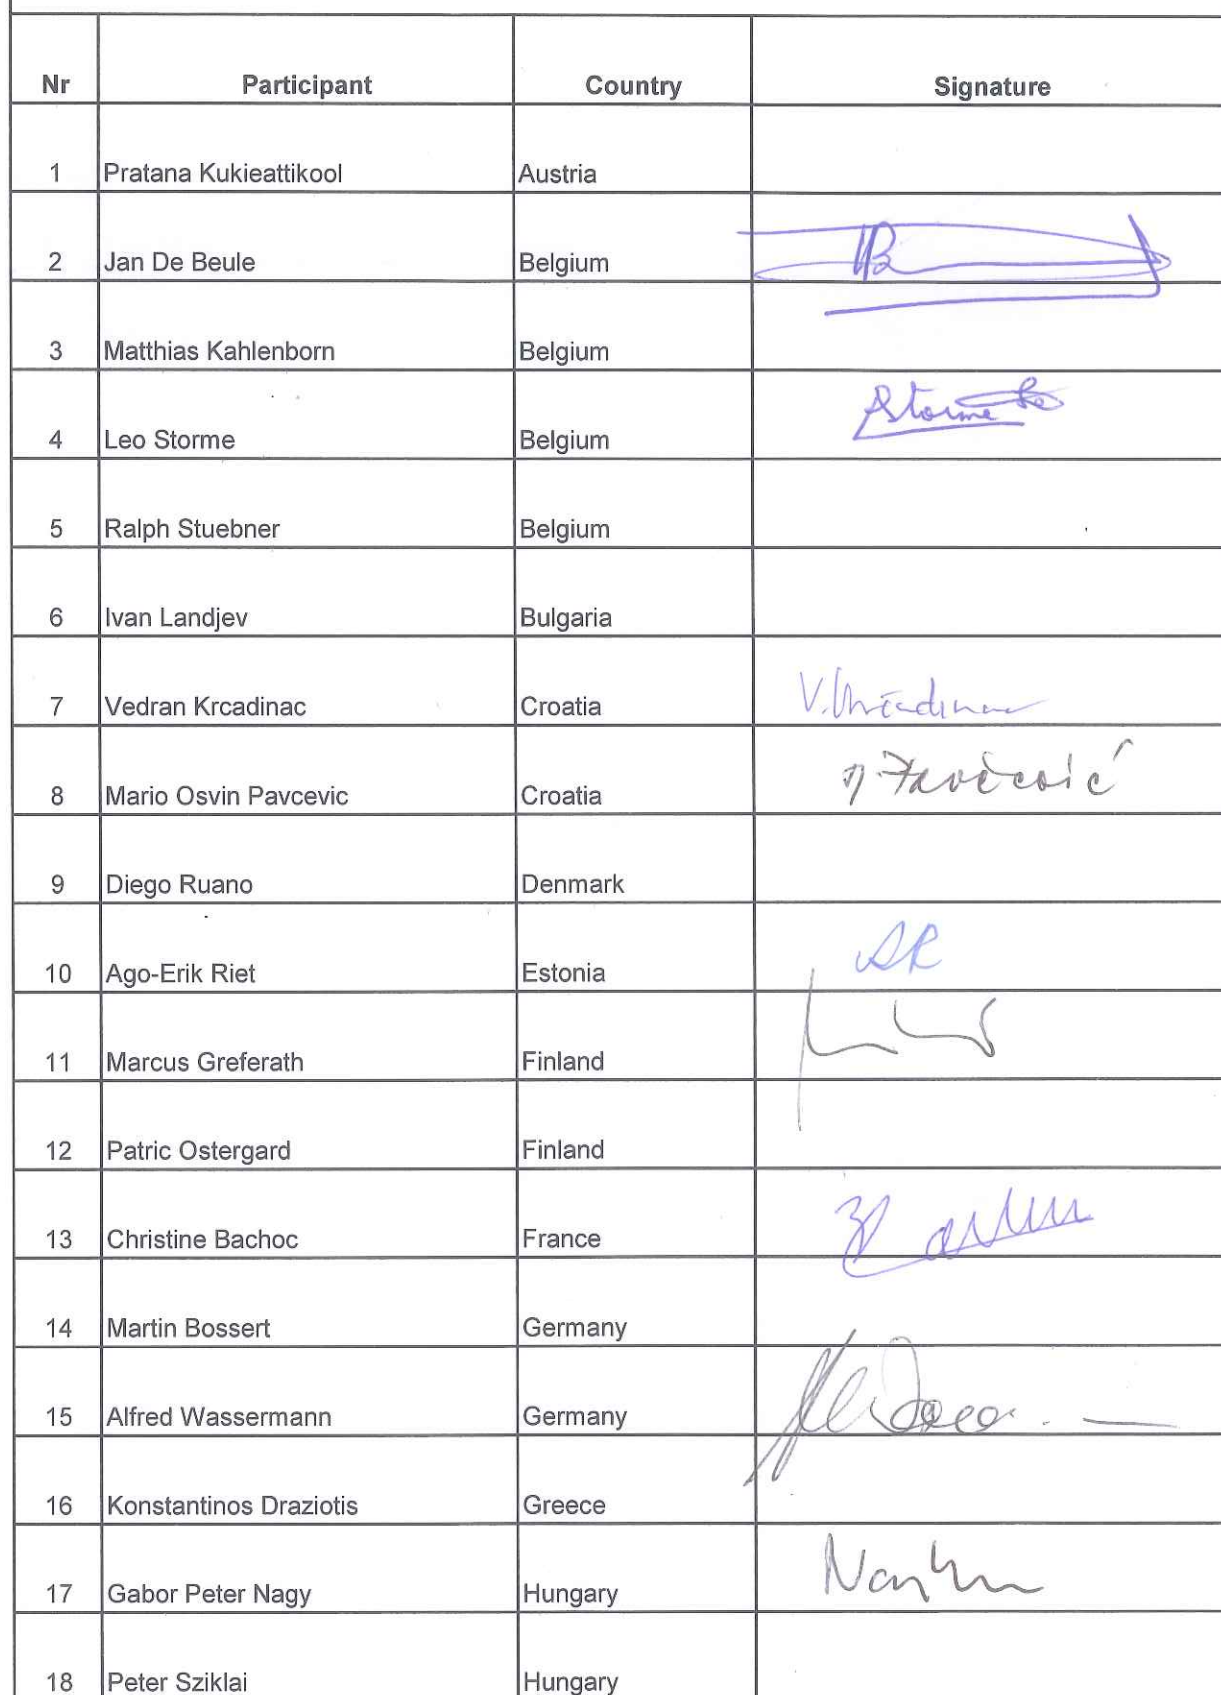 Nr Participant Country Signature
1 Pratana Kukieattikool Austria
2 Jan De Beule Belgium
3 Matthias Kahlenborn Belgium
4 Leo Storme Belgium Storme
5 Ralph Stuebner Belgium
6 Ivan Landjev Bulgaria
7 Vedran Krcadinac Croatia V. Krčadinac
8 Mario Osvin Pavcevic Croatia Pavčević
9 Diego Ruano Denmark
10 Ago-Erik Riet Estonia AR
11 Marcus Greferath Finland
12 Patric Ostergard Finland
13 Christine Bachoc France
14 Martin Bossert Germany
15 Alfred Wassermann Germany
16 Konstantinos Draziotis Greece
17 Gabor Peter Nagy Hungary
18 Peter Sziklai Hungary